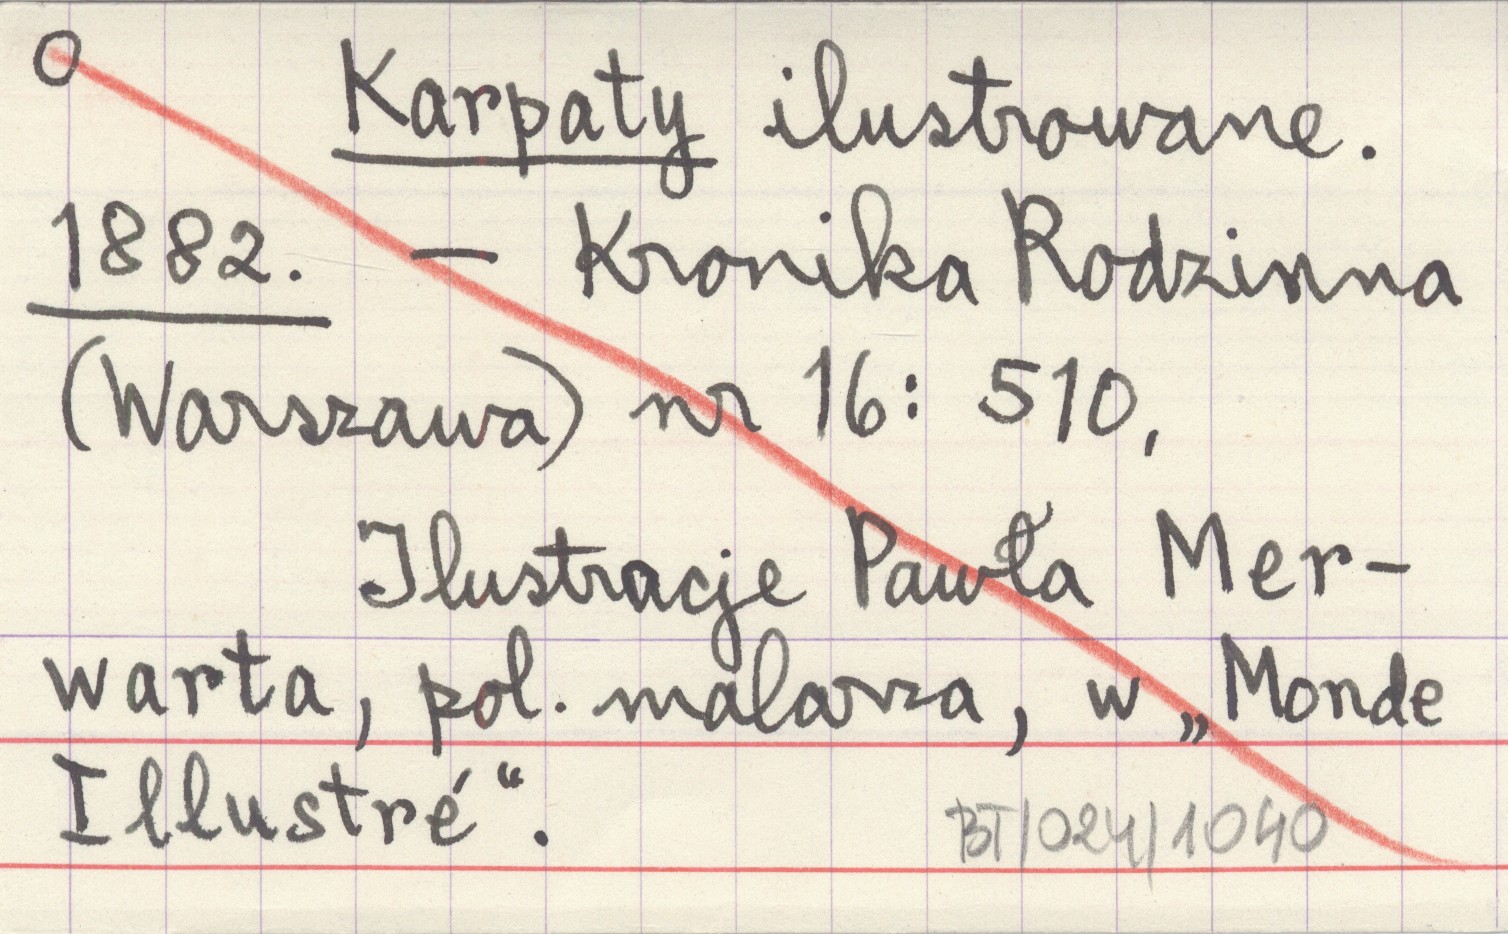 O
Karpaty ilustrowane.
1882. – Kronika Rodzinna
(Warszawa) nr 16: 510,
Ilustracje Pawła Mer-
warta, pol. malarza, w „Monde
Illustré“.
BT/024/1040